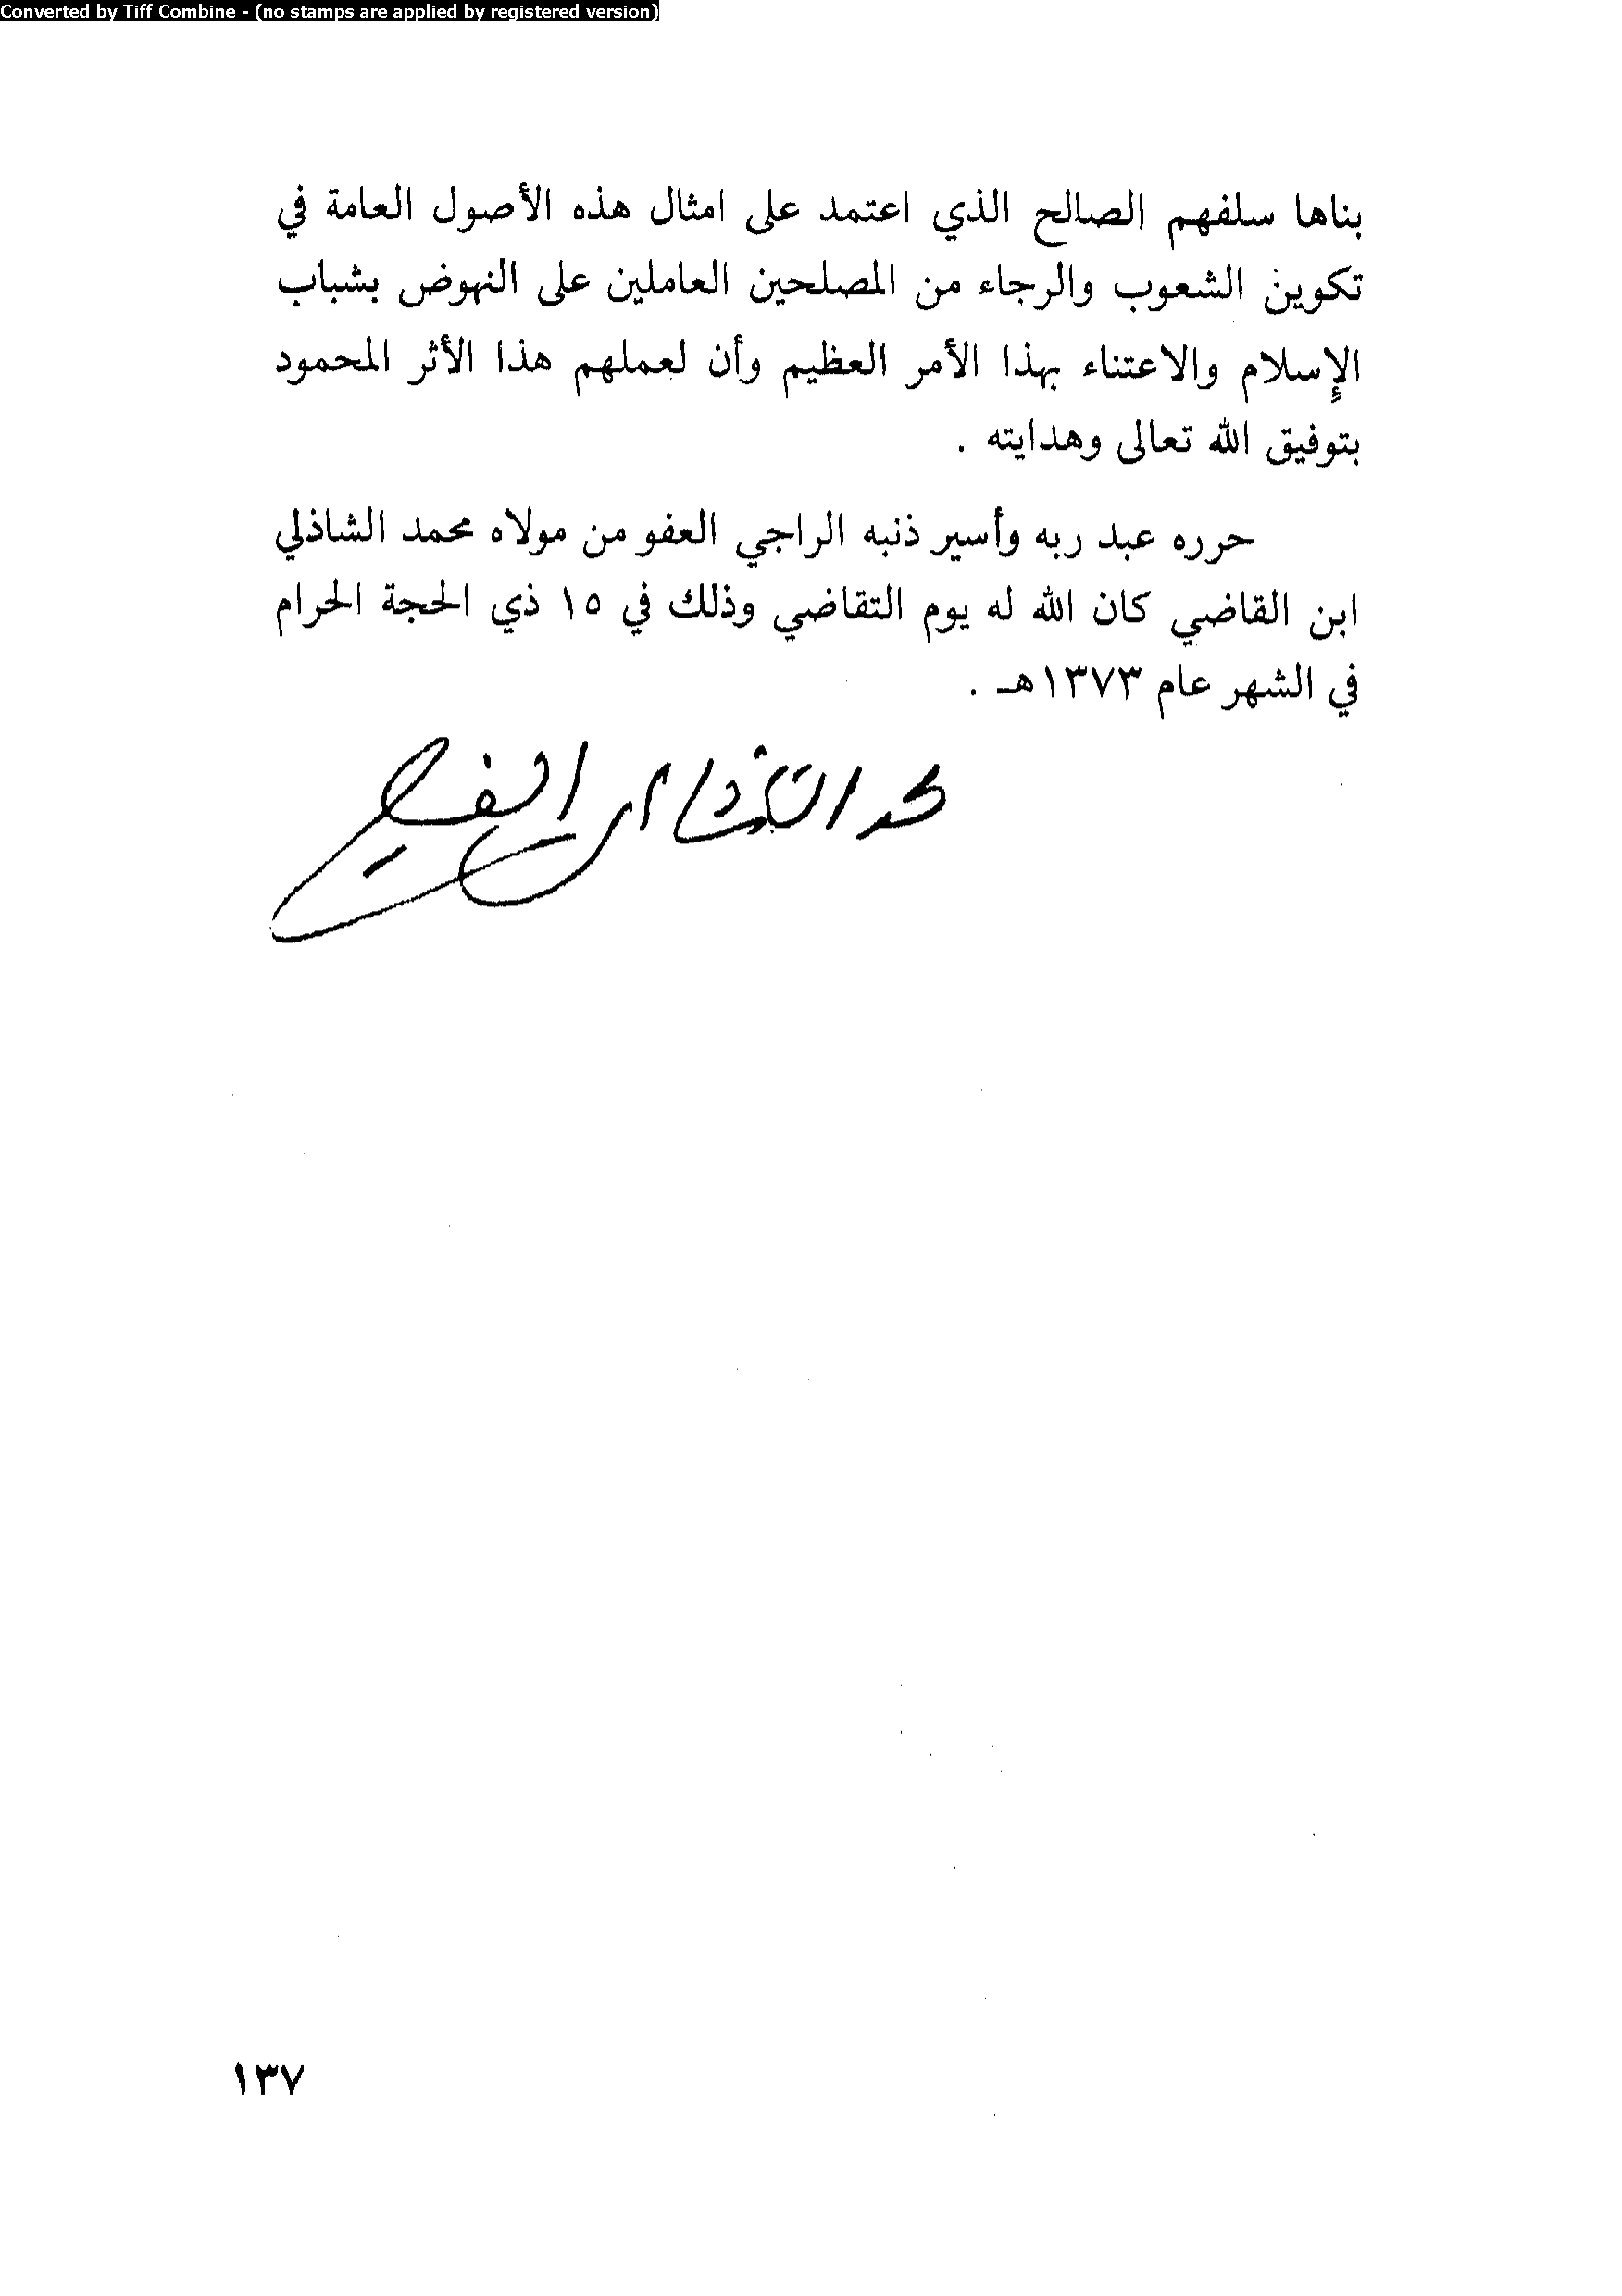 Converted by Tiff Combine - (no stamps are applied by registered version)
بناها سلفهم الصالح الذي اعتمد على امثال هذه الأصول العامة في
تكوين الشعوب والرجاء من المصلحين العاملين على النهوض بشباب
الإسلام والاعتناء بهذا الأمر العظيم وأن لعملهم هذا الأثر المحمود
بتوفيق الله تعالى وهدايته .
حرره عبد ربه وأسير ذنبه الراجي العفو من مولاه محمد الشاذلي
ابن القاضي كان الله له يوم التقاضي وذلك في ١٥ ذي الحجة الحرام
في الشهر عام ١٣٧٣هـ .
محمد الشاذلي
١٣٧